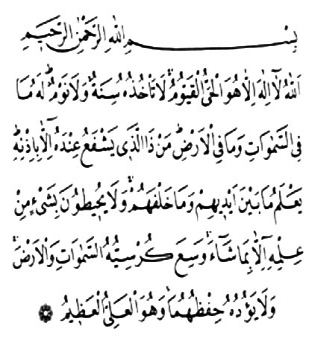 بِسْمِ اللهِ الرَّحْمٰنِ الرَّحِيمِ
اَللهُ لَٓا اِلٰهَ اِلَّا هُوَ الْحَيُّ الْقَيُّومُ لَا تَأْخُذُهُ سِنَةٌ وَلَا نَوْمٌ لَهُ مَا
فِي السَّمٰوَاتِ وَمَا فِي الْاَرْضِ مَنْ ذَا الَّذِي يَشْفَعُ عِنْدَهُٓ اِلَّا بِاِذْنِهِ
يَعْلَمُ مَا بَيْنَ اَيْدِيهِمْ وَمَا خَلْفَهُمْ وَلَا يُحِيطُونَ بِشَيْءٍ مِنْ
عِلْمِهِٓ اِلَّا بِمَا شَٓاءَ وَسِعَ كُرْسِيُّهُ السَّمٰوَاتِ وَالْاَرْضَ
وَلَا يَؤُدُهُ حِفْظُهُمَا وَهُوَ الْعَلِيُّ الْعَظِيمُ